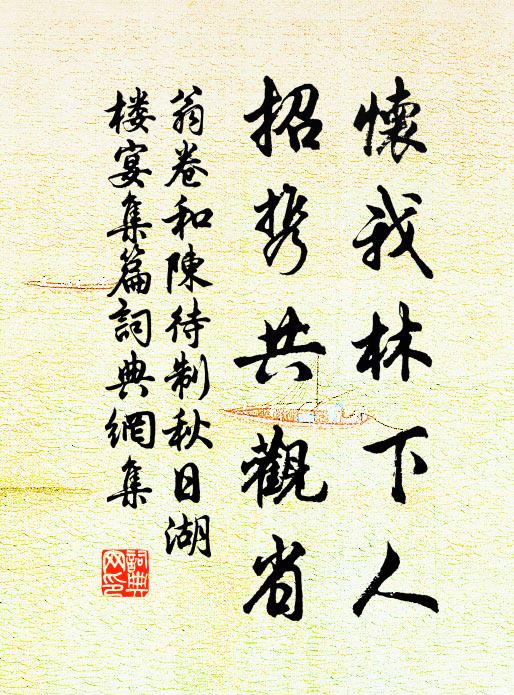 懷我林下人
招携共觀省
翁卷和陳待制秋日湖
楼宴集篇詞典網集
詞典网印